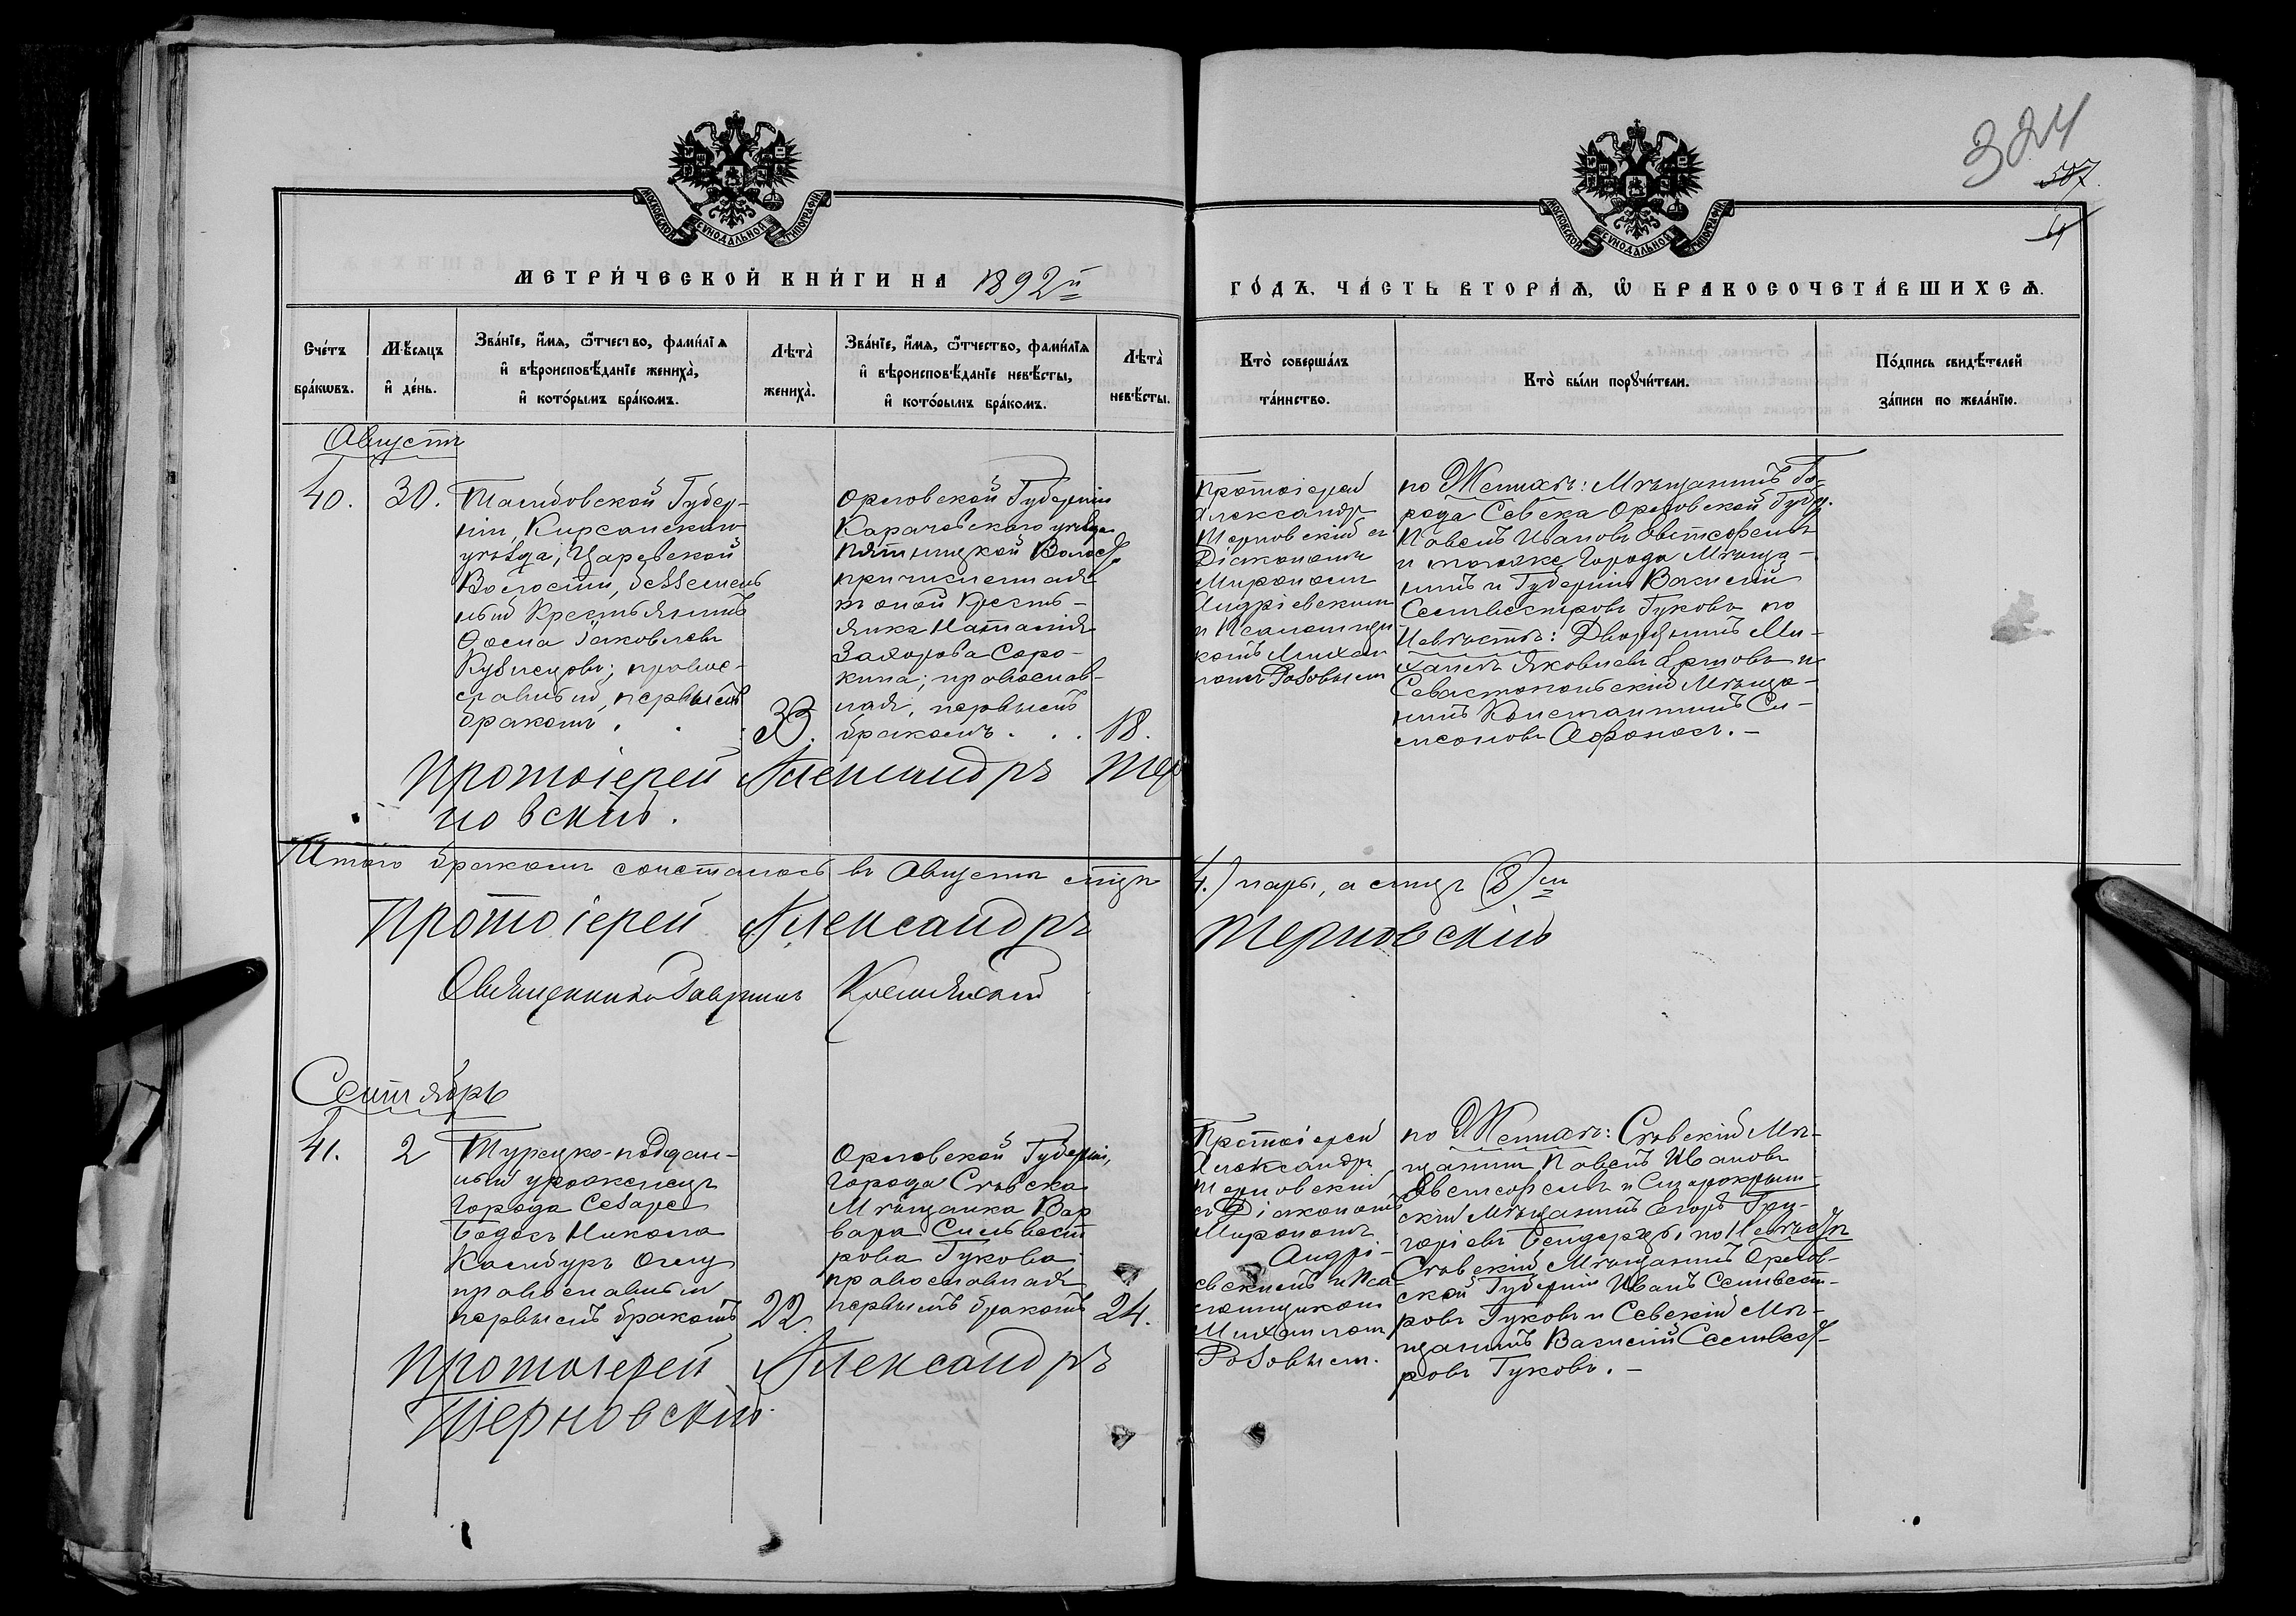 324
507.
МОСКОВСКОЙ СѴНОДАЛЬНОЙ ТИПОГРАФІИ.
МОСКОВСКОЙ СѴНОДАЛЬНОЙ ТИПОГРАФІИ.
МЕТРИ́ЧЕСКОЙ КНИ́ГИ НА 1892й
ГО́ДЪ, ЧА́СТЬ ВТОРА́Ѧ, Ѡ҆ БРАКОСОЧЕТА́ВШИХСѦ.
Сче́тъ бра́кѡвъ.
Мѣ́сѧцъ и҆ де́нь.
Зва́нїе, и҆́мѧ, ѻ҆́тчество, фами́лїѧ и҆ вѣроисповѣ́данїе жениха̀, и҆ кото́рымъ бра́комъ.
Лѣта̀ жениха̀.
Зва́нїе, и҆́мѧ, ѻ҆́тчество, фами́лїѧ и҆ вѣроисповѣ́данїе невѣ́сты, и҆ кото́рымъ бра́комъ.
Лѣта̀ невѣ́сты.
Кто̀ соверша́лъ та́инство.
Кто̀ бы́ли порꙋчи́тели.
По́дпись свидѣ́телей за́писи по жела́нїю.
Августъ
40.
30.
Тамбовской Губер-
ніи, Кирсанскаго
уѣзда, Царевской
Волости,
ный Крестьянинъ
Ѳома Яковлевъ
Кузнецовъ; правос-
славный, первымъ
бракомъ . . .
33.
Орловской Губерніи
Карачевскаго уѣзда
Пятницкой Волос
причисленная
къ оной Кресть-
янка Наталія
Захарова Соро-
кина; православ-
ная, первымъ
бракомъ . . .
18.
Протоіерей
Александр
Терновскій съ
Діакономъ
Мирономъ
Андріевскимъ
и Псаломщи-
комъ Михаи
ломъ Розовымъ
по Женихѣ: Мѣщанинъ Го-
рода Севска Орловской Губер.
Павелъ Ивановъ Евтсофеевъ
и тогоже Города Мѣща-
нинъ и Губерніи Василій
Селивестровъ Гуковъ по
Невѣстѣ: Дворянинъ Ми-
хаилъ Яковлевъ Ершовъ и
Севастопольскій Мѣща-
нинъ Константинъ Си-
меоновъ Афонасъ. –
Протоіерей Александръ Тер
новскій.
Итого бракомъ сочеталось въ Августѣ мцѣ 4.) пары, а лицъ (8)м
Протоіерей Александръ Терновскій
Священникъ Гавріилъ
Сентябрь
41.
2
Турецко-поддан-
ный уроженецъ
Города Сезарея
Бодосъ Никола
Камбуръ Оглу
православный
первымъ бракомъ
22.
Орловской Губерніи,
Города Сѣвска
Мѣщанка Вар
вара Сильвест
рова Гукова
православная
первымъ бракомъ
24.
Протоіерей
Александръ
Терновскій
съ Діакономъ
Мирономъ
Андрі-
евскимъ и Пса-
ломщикомъ
Михаиломъ
Розовымъ.
по Женихѣ: Сѣвскій Мѣ-
щанинъ Павелъ Ивановъ
Евтсофеевъ и Старокрым-
скій Мѣщанинъ Егоръ Гри-
горіевъ по Невѣстѣ
Сѣвскій Мѣщанинъ Орлов-
ской Губерніи Иванъ Селивест-
ровъ Гуковъ и Севскій Мѣ-
щанинъ Василій Селивест-
ровъ Гуковъ. –
Протоіерей Александръ
Терновскій.